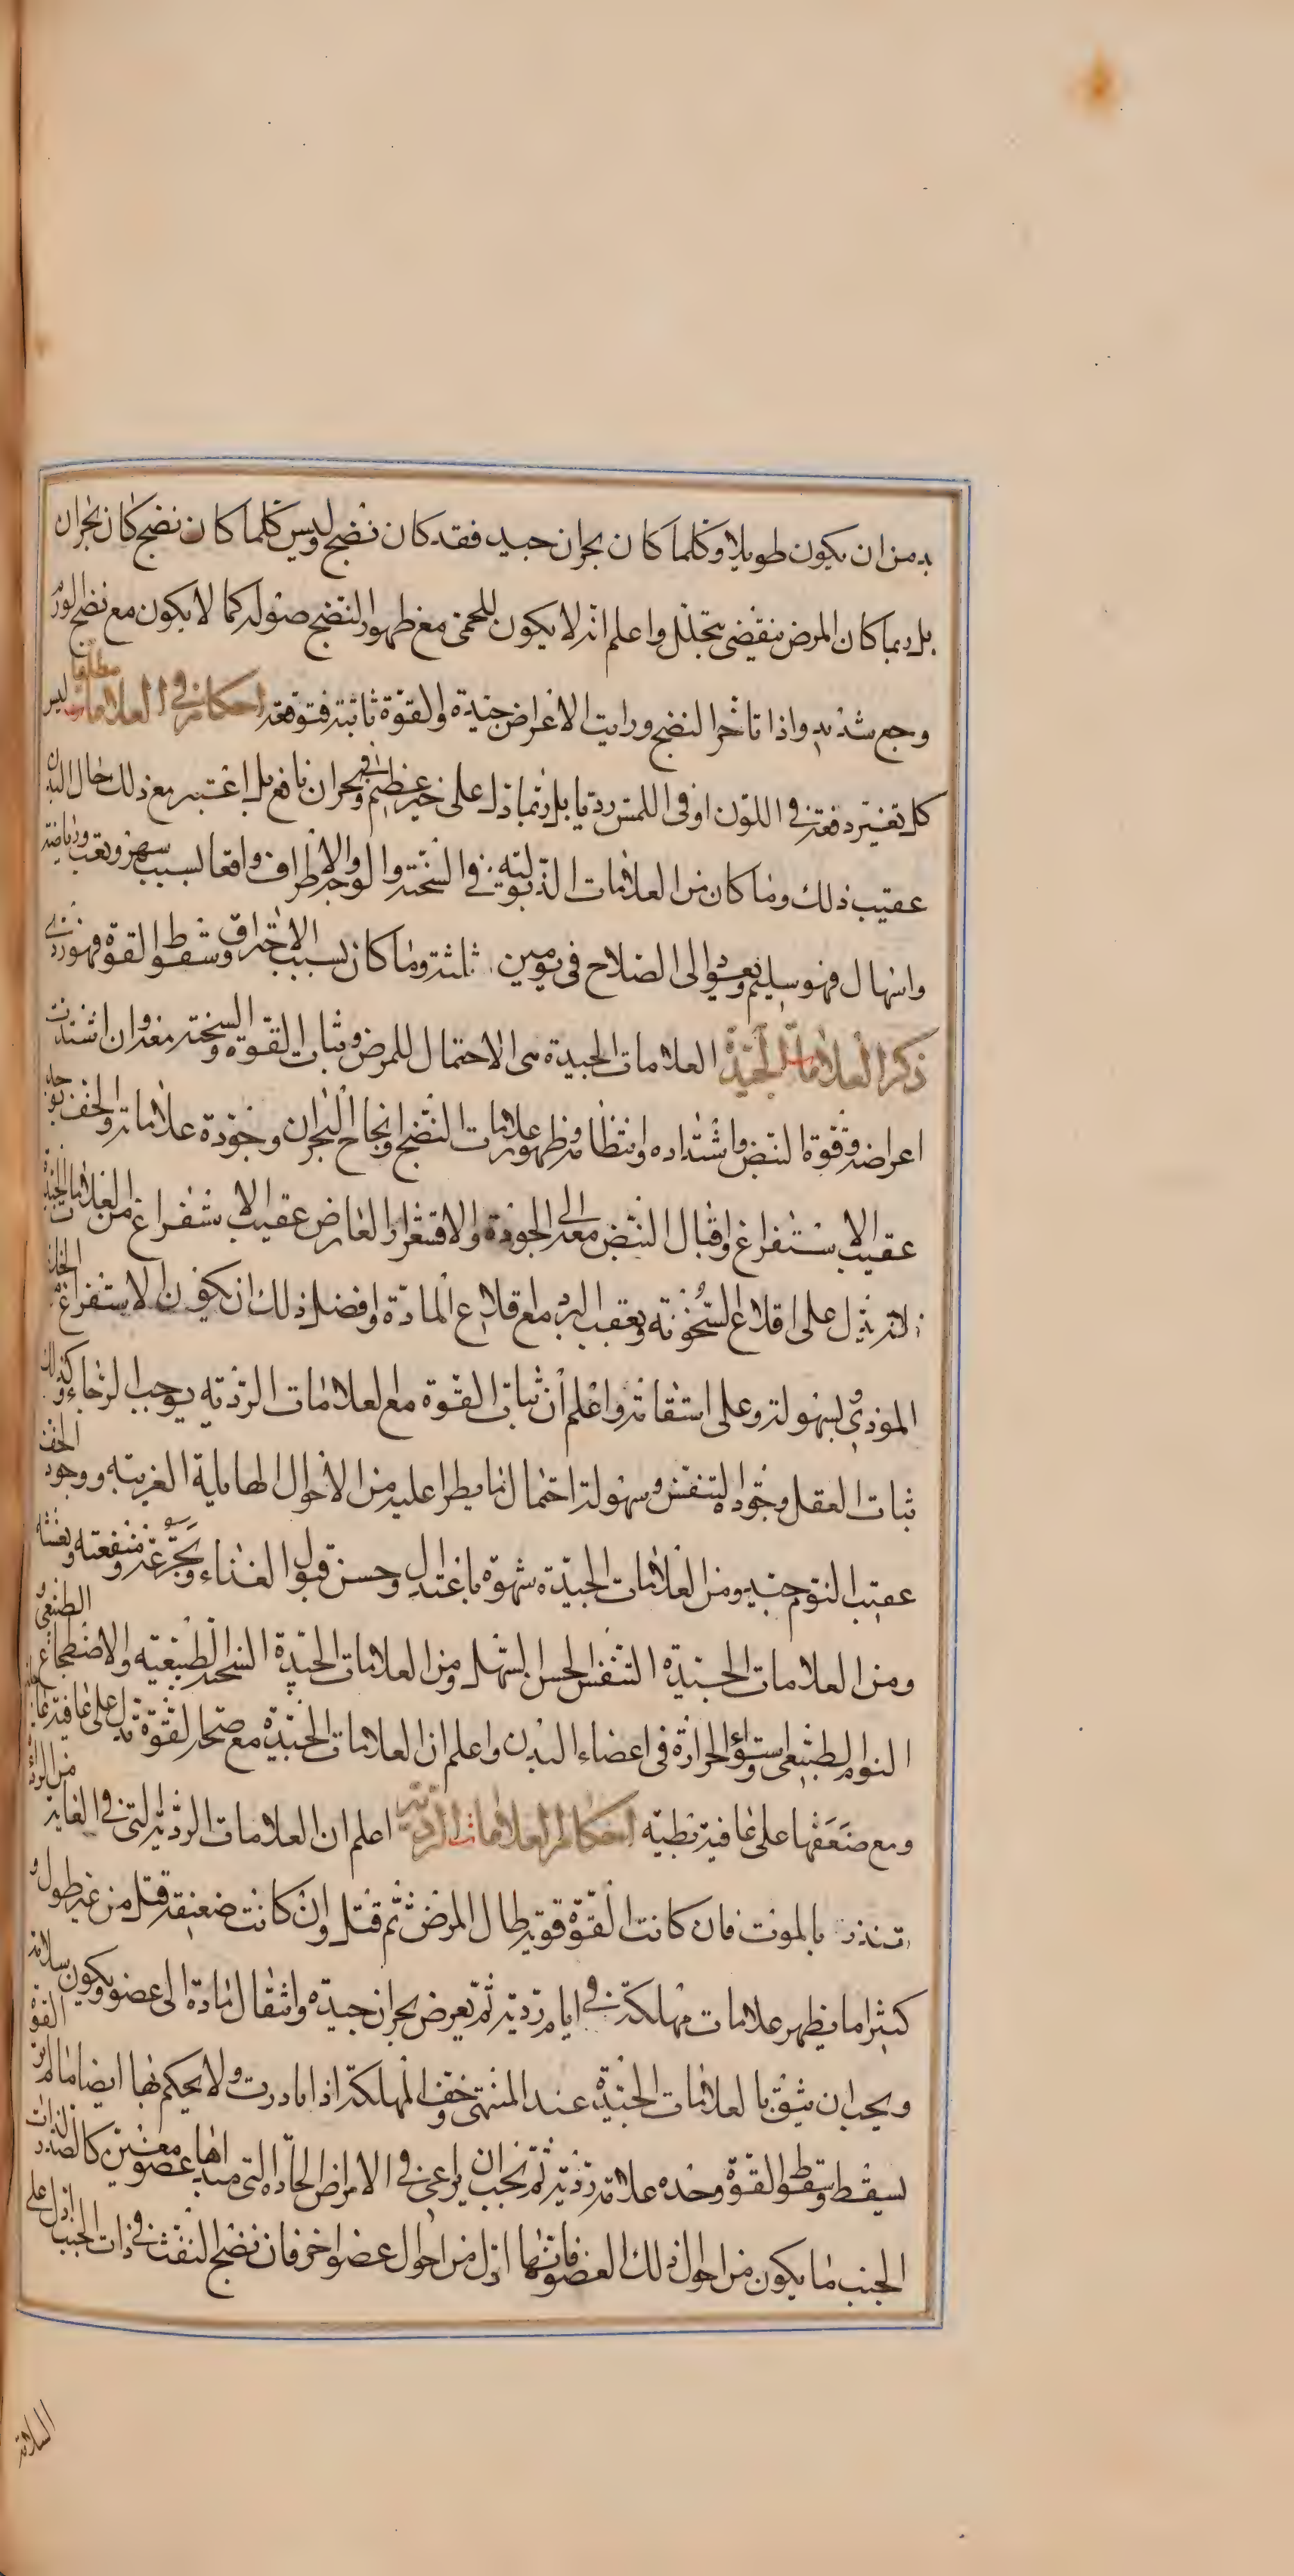 بد من ان يكون طويلا وكلما كان بحران جيد فقد كان نضج وليس كلما كان نضج كان بحران
بل ربما كان المرض ينقضي بتحلل واعلم انه لا يكون للحمى مع ظهور النضج صوله كما لا يكون مع نضج الورم
وجع شديد واذا تاخر النضج ورايت الاعراض جيدة والقوة ثابتة فتوقعه احكام في العلامات مطلقا ليس
كل تغير دفعة في اللون او في اللمس رديا بل ربما دل على خير عظيم وفي بحران نافع بل اعتبر مع ذلك حال البدن
عقيب ذلك وما كان من العلامات الذبولية في السحنة والوجه والاطراف واقعا لسبب سهر وتعب ورياضة
واسهال فهو سليم ويعود الى الصلاح في يومين ثلثة وما كان بسبب الاحتراق وسقوط القوة فهو ردي
ذكر العلامات الجيدة العلامات الجيدة هي الاحتمال للمرض وثبات القوة والسحنة معه وان اشتدت
اعراضه وقوة النبض واشتداده وانتظامه وظهور علامات النضج وانجاح البحران وجودة علاماته والخف يوجد
عقيب الاستفراغ واقبال النبض معه الى الجودة والاقشعرار العارض عقيب الاستفراغ من العلامات الجيدة
لانه يدل على اقلاع السخونة وتعقب البرد مع اقلاع المادة وافضل ذلك ان يكون الاستفراغ من الخلط
الموذي وبسهولة وعلى استقامة واعلم ان ثبات القوة مع العلامات الردية يوجب الرجاء وكذلك
ثبات العقل وجودة التنفس وسهولة احتمال ما يطرا عليه من الاحوال الهايلة الغريبة ووجود الخف
عقيب النوم جيد ومن العلامات الجيدة شهوة باعتدال وحسن قبول الغذاء وتجرعه ومنفعته ونعشه
ومن العلامات الجيدة التنفس الحسن السهل ومن العلامات الجيدة السحنة الطبيعية والاضطجاع الطبيعي و
النوم الطبيعي واستواء الحرارة في اعضاء البدن واعلم ان العلامات الجيدة مع صحة القوة تدل على عافية عاجلة
ومع ضعفها على عافية بطية احكام العلامات الردية اعلم ان العلامات الردية التي في الغاية من الرداة
تنذر بالموت فان كانت القوة قوية طال المرض ثم قتل وان كانت ضعيفة قتل من غير طول و
كثيرا ما يظهر علامات مهلكة في ايام ردية ثم يعرض بحران جيدة وانتقال مادة الى عضو ويكون سلامة
ويجب ان يثق بالعلامات الجيدة عند المنتهى وخف المهلكة اذا بادرت ولا يحكم بها ايضا ما لم تر القوة
تسقط وسقوط القوة وحده علامة ردية ثم يجب ان يراعى في الامراض الحادة التي مبداها عضو معين كالصدر لذات
الجنب ما يكون من احوال ذلك العضو فانها ادل من احوال عضو اخر فان نضج النفث في ذات الجنب ادل على
السلامة